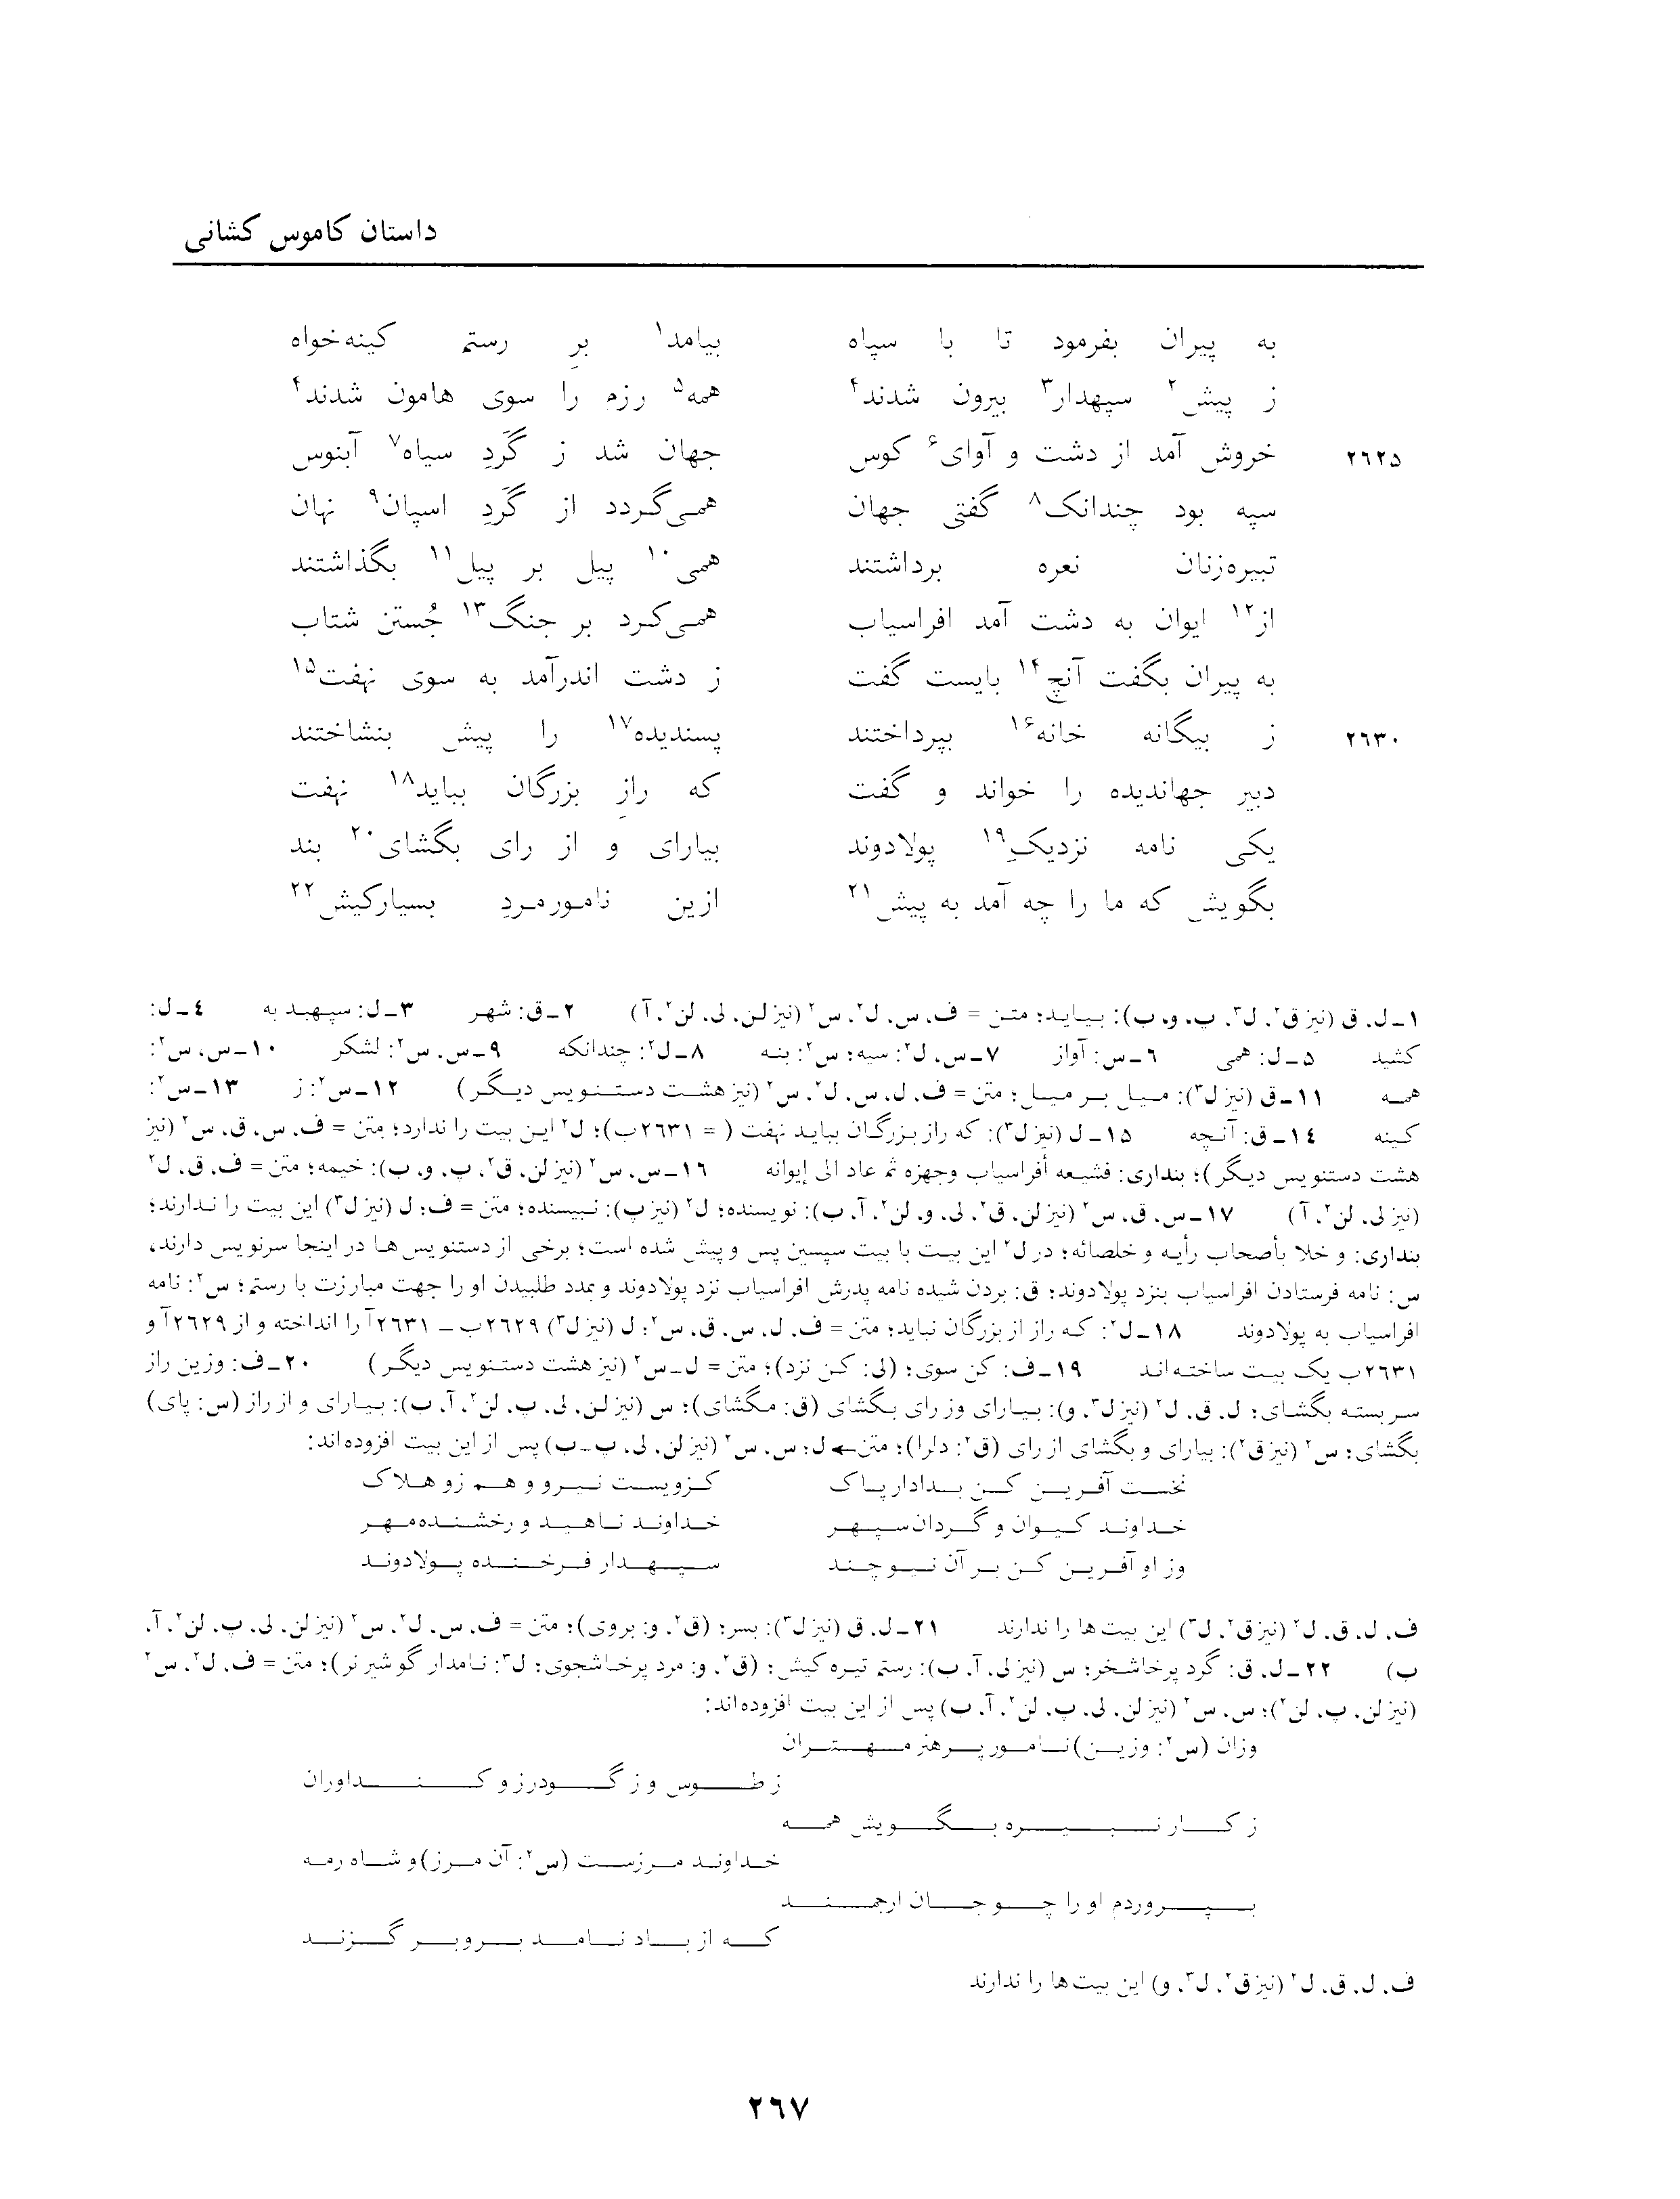 داستان کاموس کشانی
به پیران بفرمود تا با سپاه بیامد¹ برِ رستم کینه‌خواه
ز پیش² سپهدار³ بیرون شدند⁴ همه⁵ رزم را سوی هامون شدند⁴
۲٦۲۵ خروش آمد از دشت و آوای⁶ کوس جهان شد ز گَردِ سیاه⁷ آبنوس
سپه بود چندانک⁸ گفتی جهان همی‌گردد از گَردِ اسپان⁹ نهان
تبیره‌زنان نعره برداشتند همی¹⁰ پیل بر پیل¹¹ بگذاشتند
از¹² ایوان به دشت آمد افراسیاب همی‌کرد بر جنگ¹³ جُستن شتاب
به پیران بگفت آنچ¹⁴ بایست گفت ز دشت اندرآمد به سوی نهفت¹⁵
۲٦۳۰ ز بیگانه خانه¹⁶ بپرداختند پسندیده¹⁷ را پیش بنشاختند
دبیر جهاندیده را خواند و گفت که رازِ بزرگان بباید¹⁸ نهفت
یکی نامه نزدیکِ¹⁹ پولادوند بیارای و از رای بگشای²⁰ بند
بگویش که ما را چه آمد به پیش²¹ ازین نامورمردِ بسیارکیش²²
۱ـ ل، ق (نیز ق²، ل³، پ، و، ب): بیاید؛ متن = ف، س، ل²، س² (نیز لن، لی، لن²، آ) ۲ـ ق: شهر ۳ـ ل: سپهبد به ٤ـ ل:
کشید ۵ـ ل: همی ٦ـ س: آواز ۷ـ س، ل²: سپه؛ س²: بنه ۸ـ ل²: چندانکه ۹ـ س، س²: لشکر ۱۰ـ س، س²:
همه ۱۱ـ ق (نیز ل³): میل بر میل؛ متن = ف، ل، س، ل²، س² (نیز هشت دستنویس دیگر) ۱۲ـ س²: ز ۱۳ـ س²:
کینه ۱٤ـ ق: آنچه ۱۵ـ ل (نیز ل³): که راز بزرگان بباید نهفت ( = ۲٦۳۱ب)؛ ل² این بیت را ندارد؛ متن = ف، س، ق، س² (نیز
هشت دستنویس دیگر)؛ بنداری: فشیعه أفراسیاب وجهزه ثم عاد الی إیوانه ۱٦ـ س، س² (نیز لن، ق²، پ، و، ب): خیمه؛ متن = ف، ق، ل²
(نیز لی، لن²، آ) ۱۷ـ س، ق، س² (نیز لن، ق²، لی، و، لن²، آ، ب): نویسنده؛ ل² (نیز پ): نبیسنده؛ متن = ف؛ ل (نیز ل³) این بیت را ندارند؛
بنداری: و خلا بأصحاب رأیه و خلصائه؛ در ل² این بیت با بیت سپسین پس و پیش شده است؛ برخی از دستنویس‌ها در اینجا سرنویس دارند،
س: نامه فرستادن افراسیاب بنزد پولادوند؛ ق: بردن شیده نامه پدرش افراسیاب نزد پولادوند و بمدد طلبیدن او را جهت مبارزت با رستم؛ س²: نامه
افراسیاب به پولادوند ۱۸ـ ل²: که راز از بزرگان نباید؛ متن = ف، ل، س، ق، س²؛ ل (نیز ل³) ۲٦۲۹ب ـ ۲٦۳۱آ را انداخته و از ۲٦۲۹آ و
۲٦۳۱ب یک بیت ساخته‌اند ۱۹ـ ف: کن سوی؛ (لی: کن نزد)؛ متن = ل ـ س² (نیز هشت دستنویس دیگر) ۲۰ـ ف: وزین راز
سر بسته بگشای؛ ل، ق، ل² (نیز ل³، و): بیارای وز رای بگشای (ق: مگشای)؛ س (نیز لن، لی، پ، لن²، آ، ب): بیارای و از راز (س: پای)
بگشای؛ س² (نیز ق²): بیارای و بگشای از رای (ق²: دلرا)؛ متن ← ل؛ س، س² (نیز لن، لی، پ ـ ب) پس از این بیت افزوده‌اند:
نخست آفرین کن بدادار پاک کزویست نیرو و هم زو هلاک
خداوند کیوان و گردان سپهر خداوند ناهید و رخشنده‌مهر
وز او آفرین کن بر آن نیو چند سپهدار فرخنده پولادوند
ف، ل، ق، ل² (نیز ق²، ل³) این بیت‌ها را ندارند ۲۱ـ ل، ق (نیز ل³): بسر؛ (ق²، و: بروی)؛ متن = ف، س، ل²، س² (نیز لن، لی، پ، لن²، آ،
ب) ۲۲ـ ل، ق: گرد پرخاشخر؛ س (نیز لی، آ، ب): رستم تیره کیش؛ (ق²، و: مرد پرخاشجوی؛ ل³: نامدار گو شیر نر)؛ متن = ف، ل²، س²
(نیز لن، پ، لن²)؛ س، س² (نیز لن، لی، پ، لن²، آ، ب) پس از این بیت افزوده‌اند:
وزان (س²: وزین) نامور پرهنر مهتران
ز طوس و ز گودرز و کنداوران
ز کار نبیره بگویش همه
خداوند مرزست (س²: آن مرز) و شاه رمه
بپروردم او را چو جان ارجمند
که از باد نامد برو بر گزند
ف، ل، ق، ل² (نیز ق²، ل³، و) این بیت‌ها را ندارند
۲٦۷